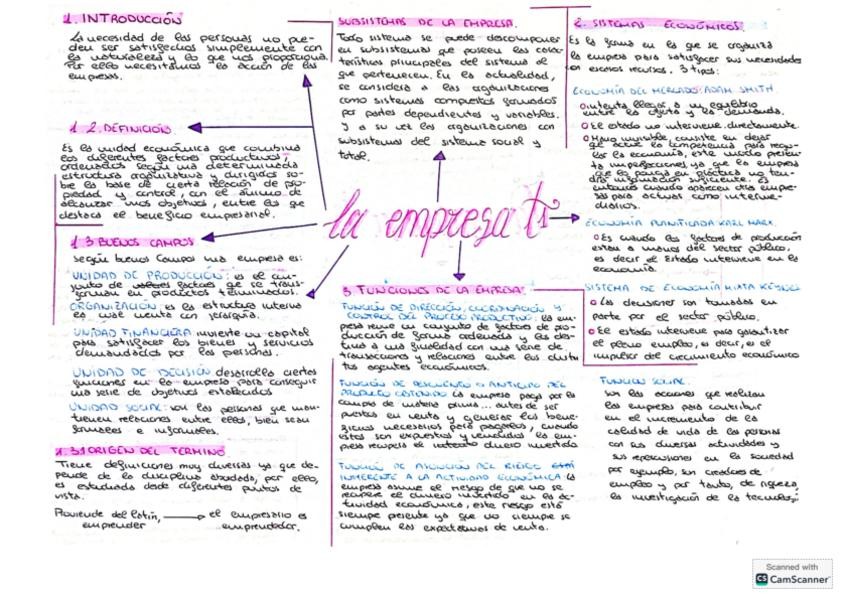 1. INTRODUCCIÓN
La necesidad de las personas no pue-
den ser satisfechas simplemente con
la naturaleza y lo que nos proporciona.
Por ello necesitamos la acción de las
empresas.
1.2. DEFINICIÓN
Es la unidad económica que combina
los diferentes factores productivos,
ordenados según una determinada
estructura organizativa y dirigidos so-
bre la base de cierta relación de pro-
piedad y control, con el ánimo de
alcanzar unos objetivos, entre los que
destaca el beneficio empresarial.
1.3 BUENOS CAMPOS
Según buenos campos una empresa es:
UNIDAD DE PRODUCCIÓN: es el con-
junto de factores que se trans-
forman en productos terminados.
ORGANIZACIÓN es la estructura interna
la cual cuenta con jerarquía.
UNIDAD FINANCIERA invierte un capital
para satisfacer los bienes y servicios
demandados por las personas.
UNIDAD DE DECISIÓN desarrolla ciertas
funciones en la empresa para conseguir
una serie de objetivos establecidos
UNIDAD SOCIAL: son las personas que man-
tienen relaciones entre ellas, bien sean
formales e informales.
1.3.1 ORIGEN DEL TERMINO
Tiene definiciones muy diversas ya que de-
pende de la disciplina abordada, por ello,
es estudiada desde diferentes puntos de
vista.
Proviende del latín, emprender
el empresario es emprendedor.
SUBSISTEMAS DE LA EMPRESA.
Todo sistema se puede descomponer
en subsistemas que poseen las carac-
terísticas principales del sistema al
que pertenecen. En la actualidad,
se considera a las organizaciones
como sistemas complejos formados
por partes dependientes y variables.
Y a su vez las organizaciones son
subsistemas del sistema social y
total.
la empresa t1
3. FUNCIONES DE LA EMPRESA:
FUNCIÓN DE DIRECCIÓN, COORDINACIÓN Y
CONTROL DEL PROCESO PRODUCTIVO: la em-
presa reúne un conjunto de factores de pro-
ducción de forma ordenada y los des-
tina a una finalidad con una serie de
transacciones y relaciones entre los distin
tos agentes económicos.
FUNCIÓN DE DESCUENTO O ANTICIPO DEL
PRODUCTO OBTENIDO la empresa paga por la
compra de materia prima... antes de ser
puestas en venta y generar los bene-
ficios necesarios para pagarlos, cuando
estas son expuestas y vendidas la em-
presa recupera el dinero invertido
FUNCIÓN DE ASUNCIÓN DEL RIESGO ESTÁ
INHERENTE A LA ACTIVIDAD ECONÓMICA la
empresa asume el riesgo de que no se
recupere el dinero invertido en la ac-
tividad económica, este riesgo está
siempre presente ya que no siempre se
cumplen las expectativas de venta.
2. SISTEMAS ECONÓMICOS
Es la forma en la que se organiza
la empresa para satisfacer sus necesidades
en escasos recursos. 3 tipos:
ECONOMÍA DEL MERCADO: ADAM SMITH
intenta llegar a un equilibrio
entre la oferta y la demanda.
El estado no interviene directamente.
Mano invisible, consiste en dejar
que actúe la competencia para regu-
lar la economía, este modo presen-
ta imperfecciones ya que la empresa
que la ponga en práctica no ten-
dría información suficiente. Es
entonces cuando aparecen otras empre-
sas para actuar como interme-
diarios.
ECONOMÍA PLANIFICADA KARL MARX.
Es cuando los factores de producción
están a manos del sector público,
es decir el Estado interviene en la
economía.
SISTEMA DE ECONOMÍA MIXTA KEYNES
Las decisiones son tomadas en
parte por el sector público.
El estado interviene para garantizar
el pleno empleo, es decir, es el
impulsor del crecimiento económico
FUNCIÓN SOCIAL.
son las acciones que realizan
las empresas para contribuir
en el incremento de la
calidad de vida de las personas
con sus diversas actividades y
sus repercusiones en la sociedad
por ejemplo, son creadores de
empleo y por tanto, de riqueza,
la investigación de la tecnología
Scanned with
CS CamScanner